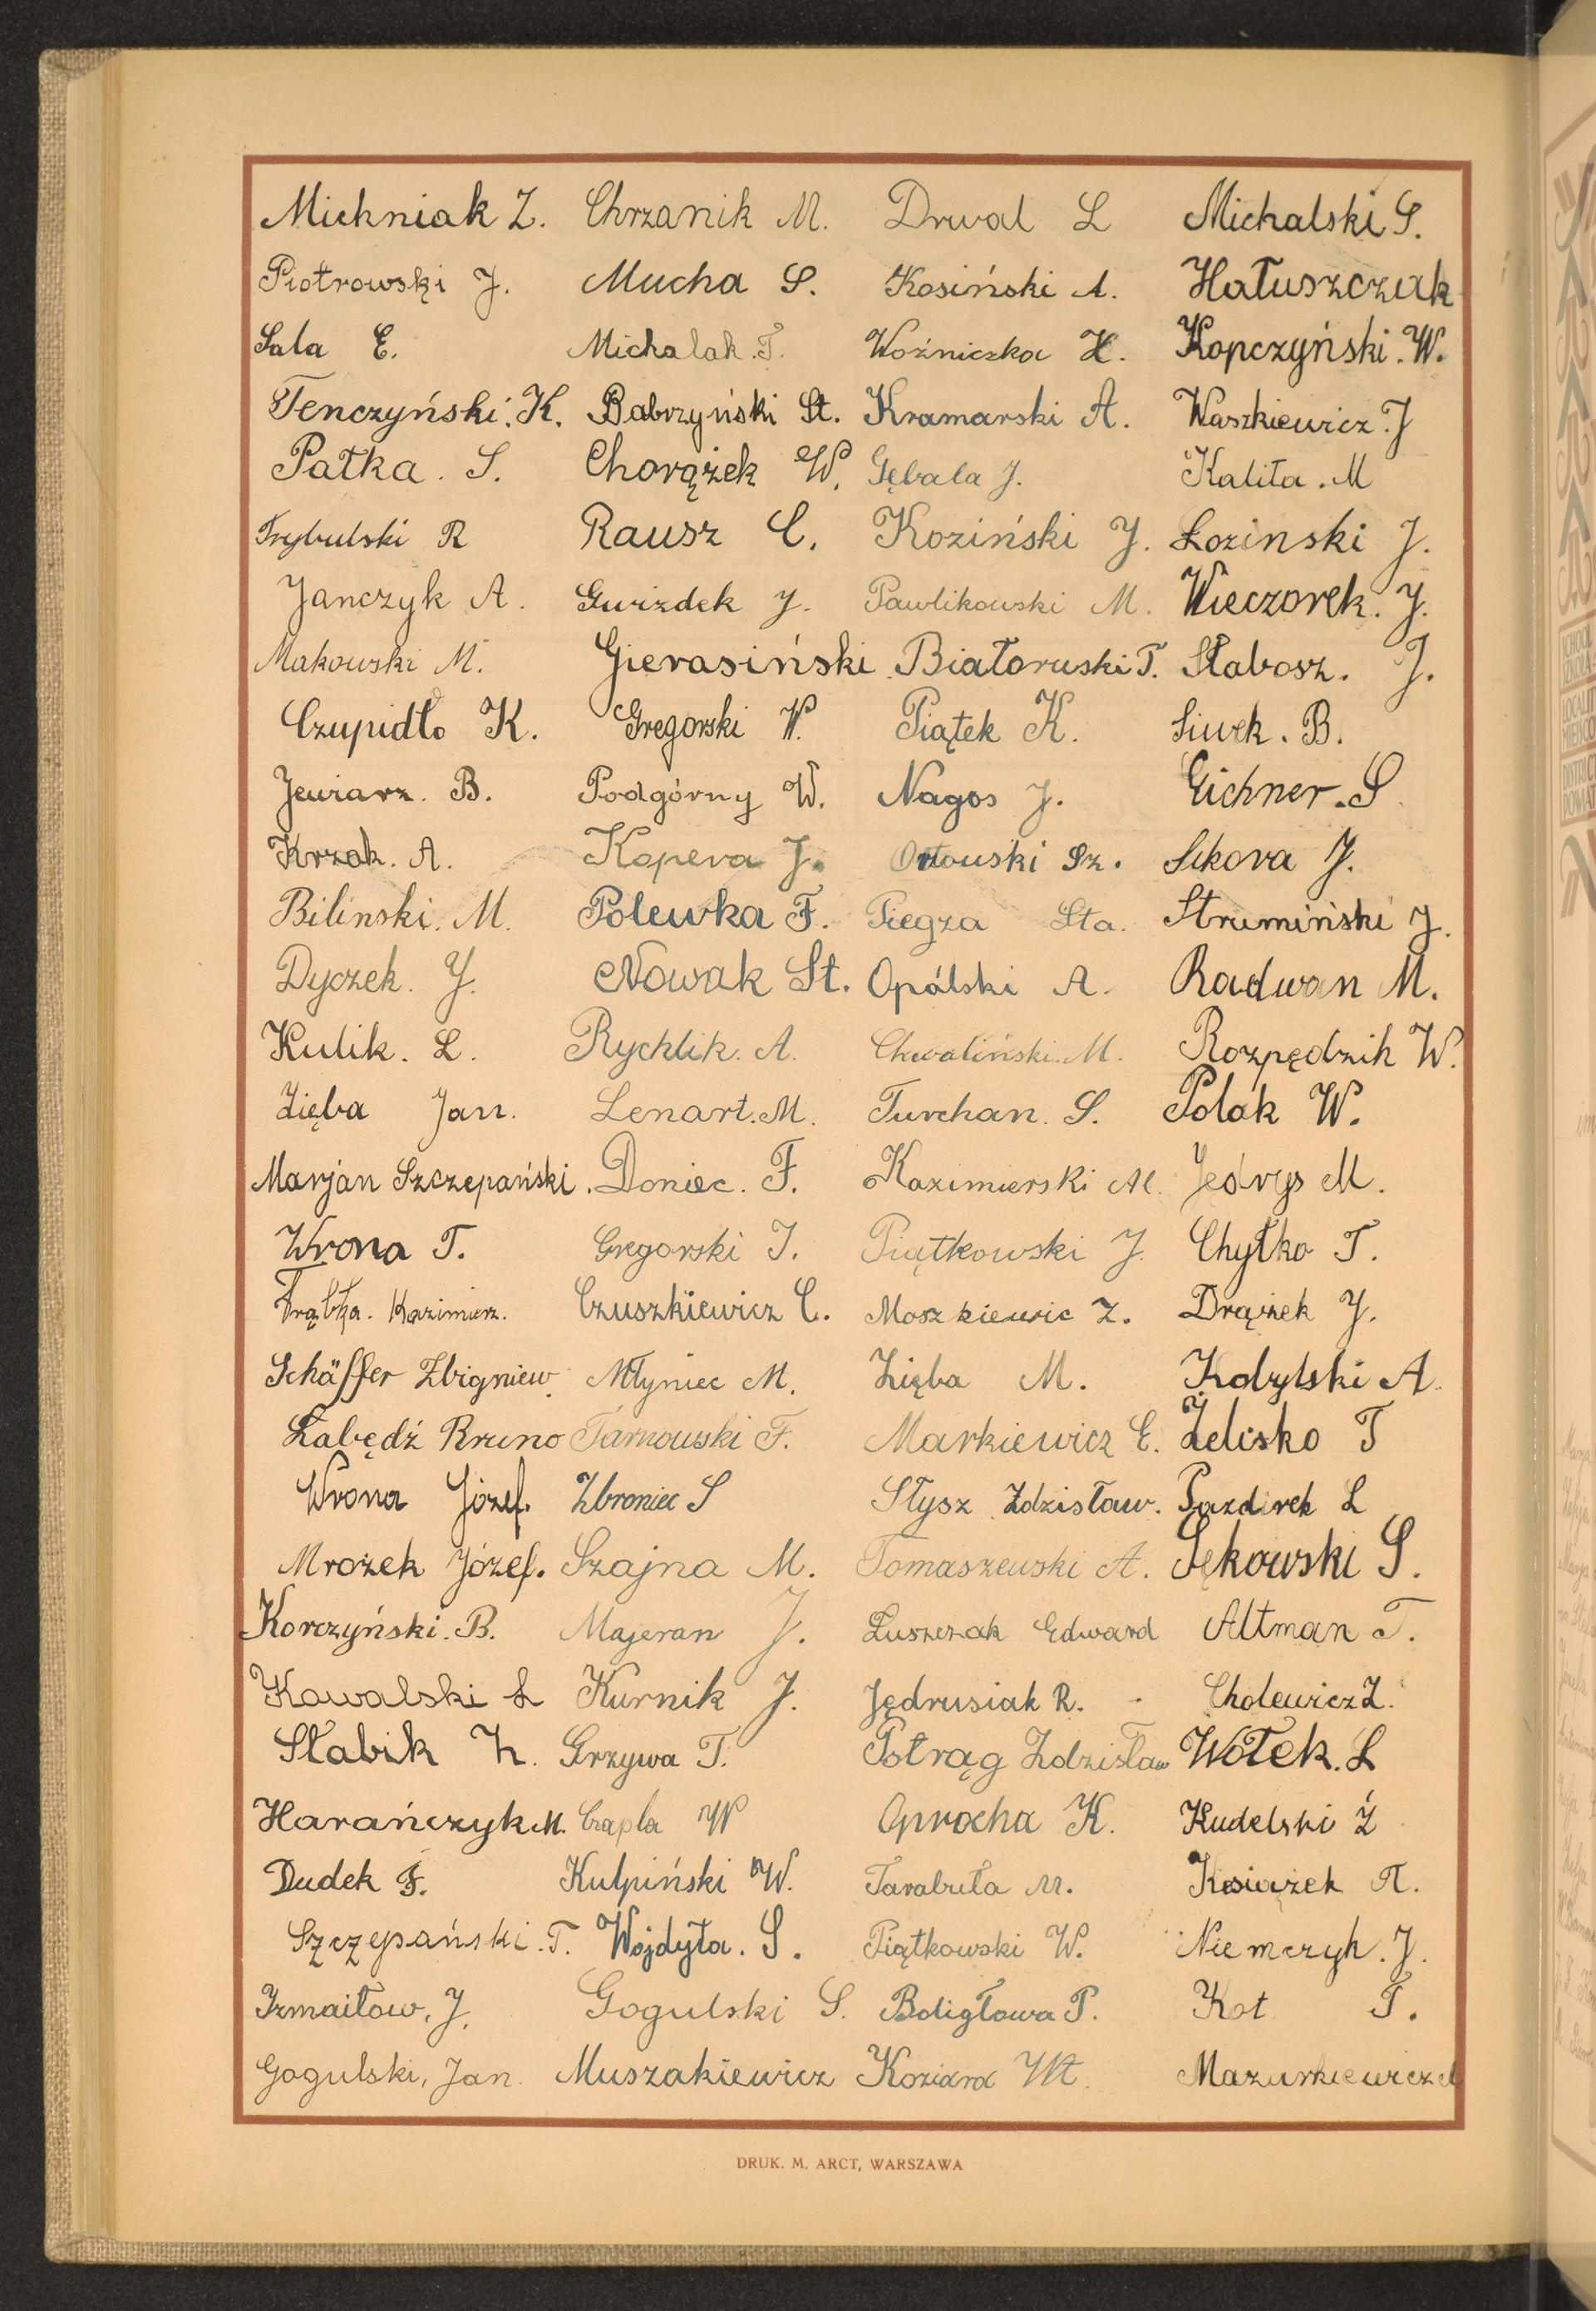 Michniak Z. Chrzanik M. Drwal L Michalski S.
Piotrowski J. Mucha S. Kosiński A. Hałuszczak
Sala E. Michalak. T. Woźniczka H. Kopczyński. W.
Tenczyński. K. Babrzyński St. Kramarski A. Waszkiewicz. J
Pałka. S. Chorążek W. Gębala J. Kalita. M
Trybulski R Rausz C. Koziński J. Łozinski J.
Janczyk A. Gwizdek J. Pawlikowski M. Wieczorek. J.
Makowski M. Gierasiński Białoruski T. Słabosz. J.
Czupidło K. Gregorski W. Piątek K. Siwek. B.
Jewiarz. B. Podgórny W. Nagos J. Eichner. S
Krzak. A. Kopera J. Orłowski Sz. Sikora J.
Bilinski. M. Polewka F. Piegza Sta. Strumiński J.
Dyczek. J. Nowak St. Opálski A. Radwan M.
Kulik. L. Rychlik. A. Chwaliński. M. Rozpędzik W.
Zięba Jan. Lenart. M. Turchan. S. Polak W.
Marjan Szczepański. Doniec. F. Kazimierski M. Jędrys M.
Wrona T. Gregorski J. Piątkowski J. Chyłko T.
Trąbka. Kazimierz. Czuszkiewicz C. Moszkiewic Z. Drążek J.
Schäffer Zbigniew. Młyniec M. Zięba M. Kobylski A.
Łabędź Bruno Tarnowski F. Markiewicz E. Żelisko T
Wrona Józef. Zbroniec S Słysz Zdzisław. Pazdirek L
Mrożek Józef. Szajna M. Tomaszewski A. Sękowski S.
Korczyński. B. Majeran J. Łuszczak Edward Altman T.
Kowalski L Kurnik J. Jędrusiak R. Cholewicz Z.
Słabik Z. Grzywa T. Potrąg Zdzisław Wołek. L
Harańczyk M. Czapla W Oprocha K. Kudelski Z
Dudek F. Kulpiński W. Tarabuła M. Ksiażek R.
Szczepański. T. Wojdyła. S. Piątkowski W. Niemczyk. J.
Izmaiłow, J. Gogulski S. Boligłowa P. Kot T.
Gogulski, Jan. Muszakiewicz Koziara Wł. Mazurkiewicz
DRUK. M. ARCT, WARSZAWA